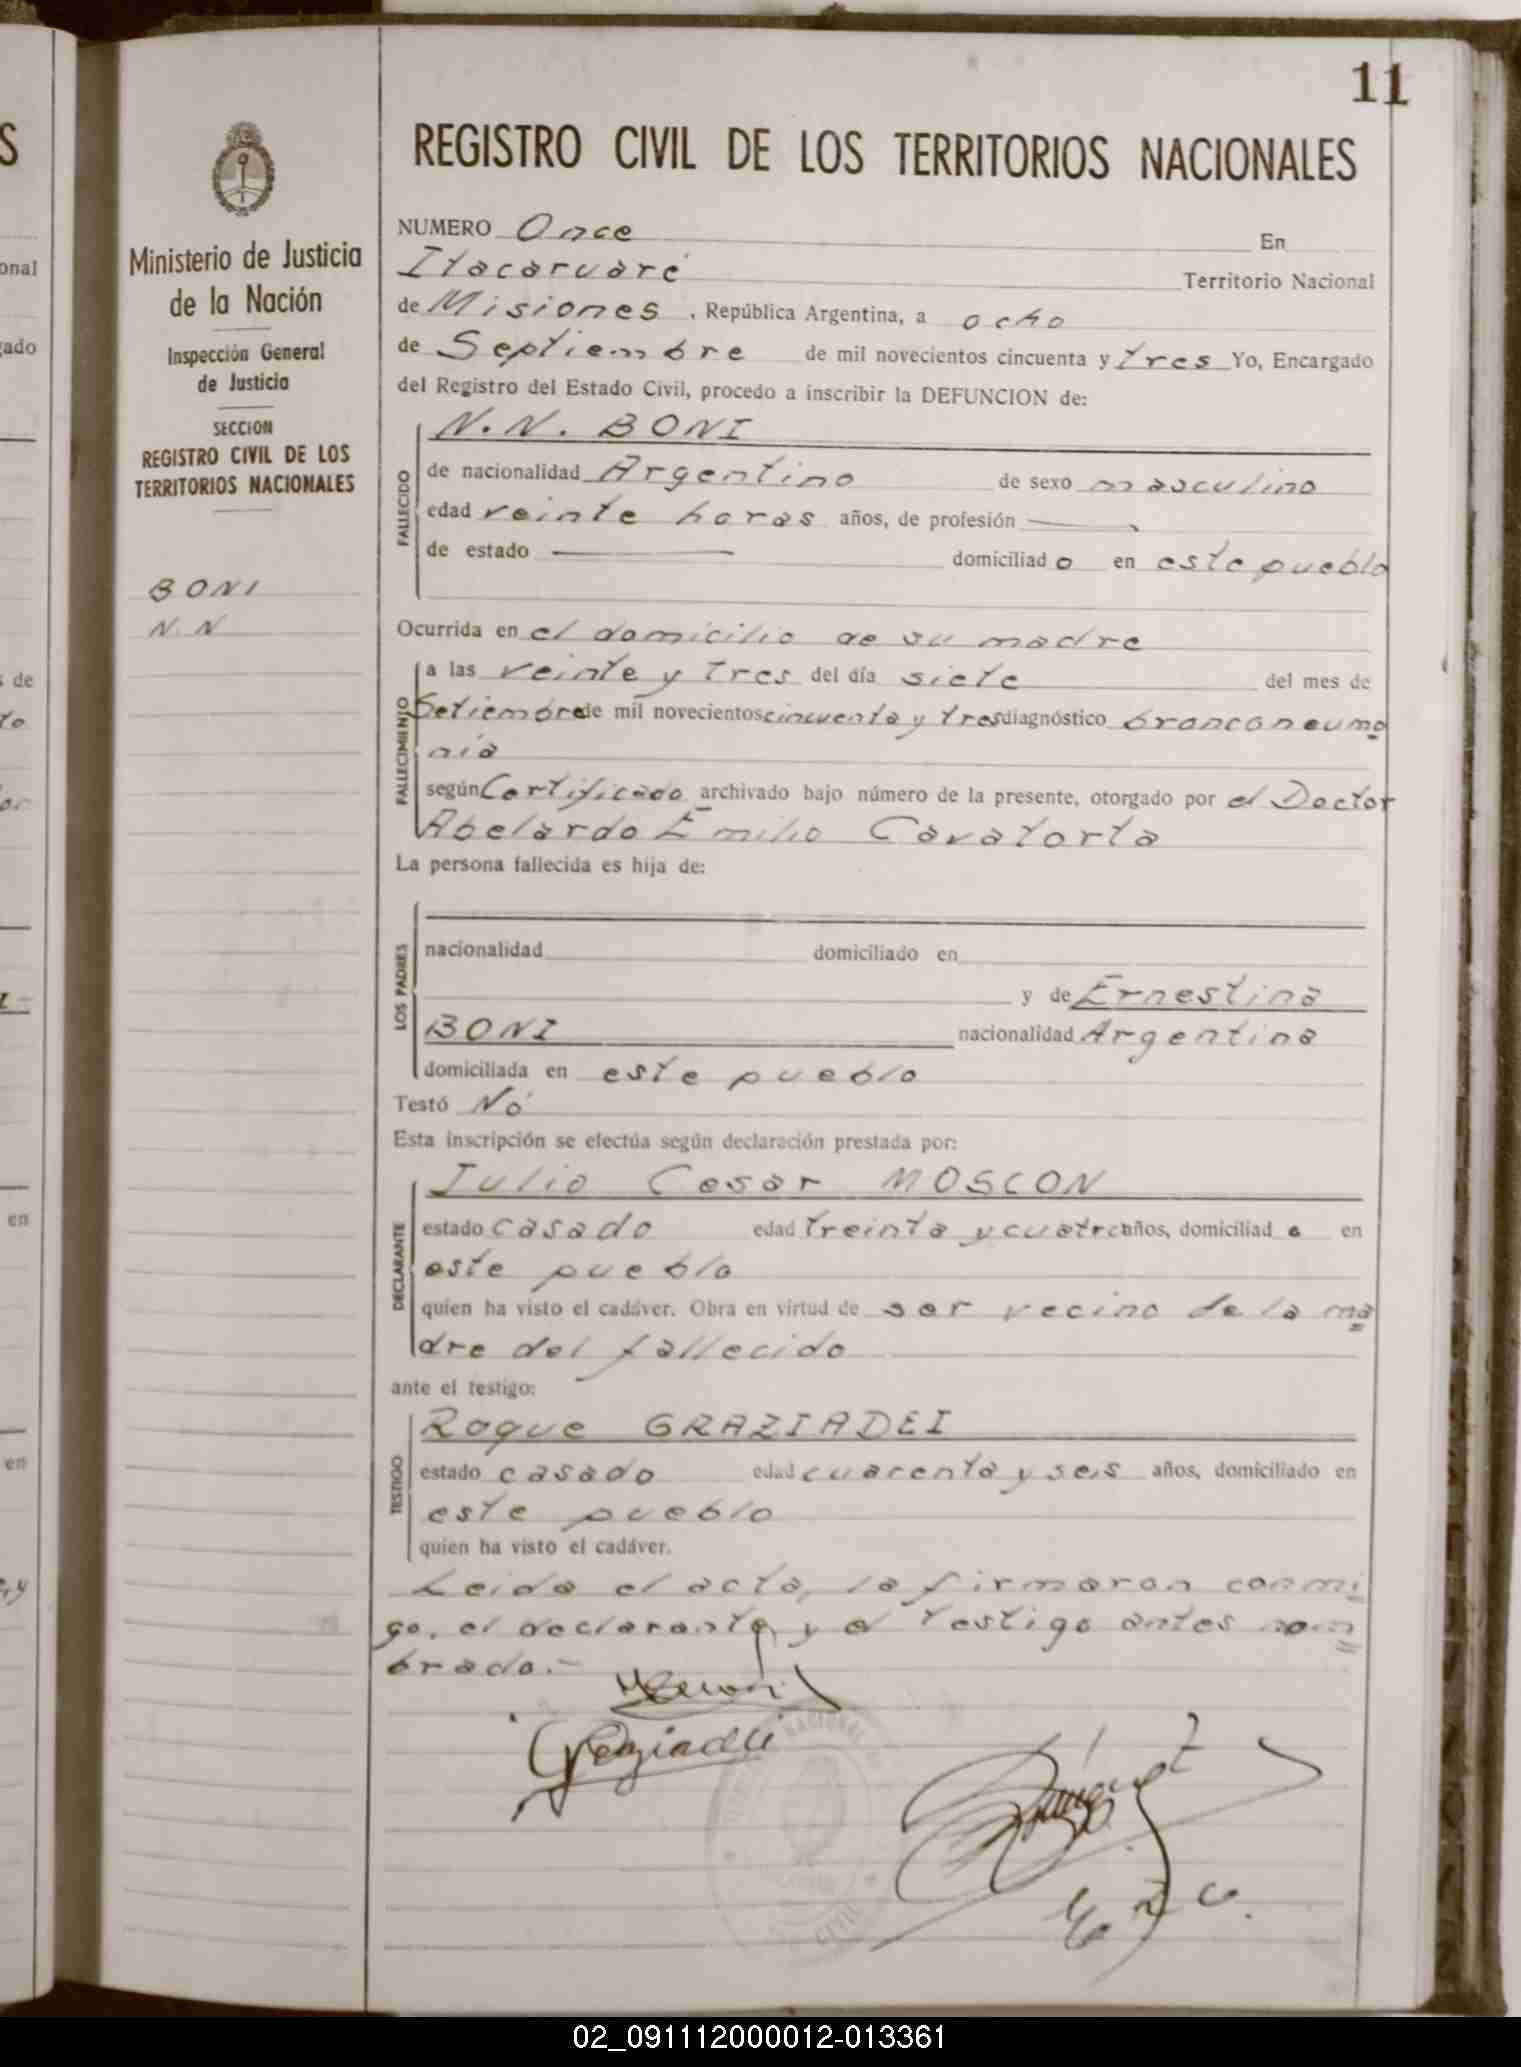 11
REGISTRO CIVIL DE LOS TERRITORIOS NACIONALES
Ministerio de Justicia
de la Nación
Inspección General
de Justicia
SECCION
REGISTRO CIVIL DE LOS
TERRITORIOS NACIONALES
BONI
N.N
NUMERO Once En
Itacaruaré Territorio Nacional
de Misiones , República Argentina, a ocho
de Septiembre de mil novecientos cincuenta y tres Yo, Encargado
del Registro del Estado Civil, procedo a inscribir la DEFUNCION de:
FALLECIDO
N.N. BONI
de nacionalidad Argentino de sexo masculino
edad veinte horas años, de profesión
de estado domiciliado en este pueblo
Ocurrida en el domicilio de su madre
FALLECIMIENTO
a las veinte y tres del día siete del mes de
Setiembre de mil novecientos cincuenta y tres diagnóstico bronconeumo
nia
según Certificado archivado bajo número de la presente, otorgado por el Doctor
Abelardo Emilio Cavatorta
La persona fallecida es hija de:
LOS PADRES
nacionalidad domiciliado en
y de Ernestina
BONI nacionalidad Argentina
domiciliada en este pueblo
Testó Nó
Esta inscripción se efectúa según declaración prestada por:
DECLARANTE
Julio Cesar MOSCON
estado casado edad treinta y cuatro años, domiciliado en
este pueblo
quien ha visto el cadáver. Obra en virtud de ser vecino de la ma
dre del fallecido
ante el testigo:
TESTIGO
Roque GRAZIADEI
estado casado edad cuarenta y seis años, domiciliado en
este pueblo
quien ha visto el cadáver.
Leida el acta, la firmaron conmi
go, el declarante, y el testigo antes nom
brado.-
Graziadei
02_091112000012-013361